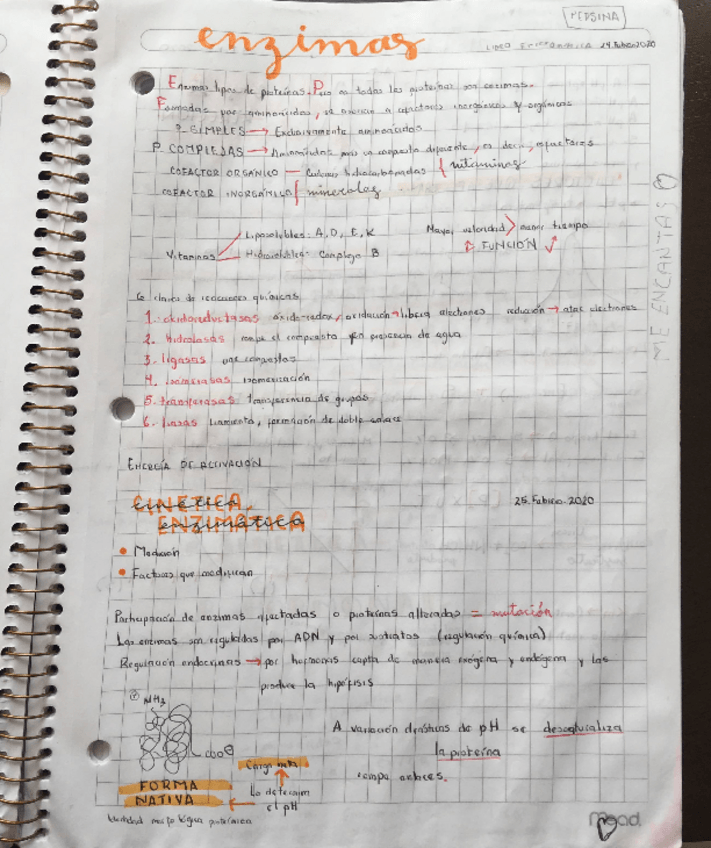 PEPSINA
enzimas
24. Febrero 2020
Enzimas tipos de proteínas. Pero no todas las proteínas son enzimas.
Formadas por aminoácidos, se asocian a cofactores inorgánicos y orgánicos
P. SIMPLES → Exclusivamente aminoácidos
P. COMPLEJAS → Aminoácidos más un compuesto diferente, es decir, cofactores
COFACTOR ORGÁNICO — Cadenas hidrocarbonadas { vitaminas
COFACTOR INORGÁNICO { minerales
Liposolubles: A, D, E, K
Mayor velocidad > menor tiempo
Vitaminas
Hidrosolubles: Complejo B
FUNCIÓN
ME ENCANTAS
6 clases de reacciones químicas
1. oxidoreductasas óxido-redox, oxidación → libera electrones reducción → atae electrones
2. Hidrolasas rompe el compuesto en presencia de agua
3. ligasas une compuestos
4. isomerasas isomerización
5. transferasas Transferencia de grupos
6. liasas formación de doble enlace
ENERGÍA DE ACTIVACIÓN
CINÉTICA
ENZIMÁTICA
25. Febrero. 2020
• Medición
• Factores que modifican
Participación de enzimas afectadas o proteínas alteradas = mutación
Las enzimas son reguladas por ADN y por sustratos (regulación química)
Regulación endocrinas → por hormonas capta de manera exógena y endógena y las
produce la hipófisis
⊕ NH3
COO⊖
A variación drásticas de pH se desnaturaliza
la proteína
rompe enlaces.
Carga neta
Lo determina
el pH
FORMA
NATIVA
Mead